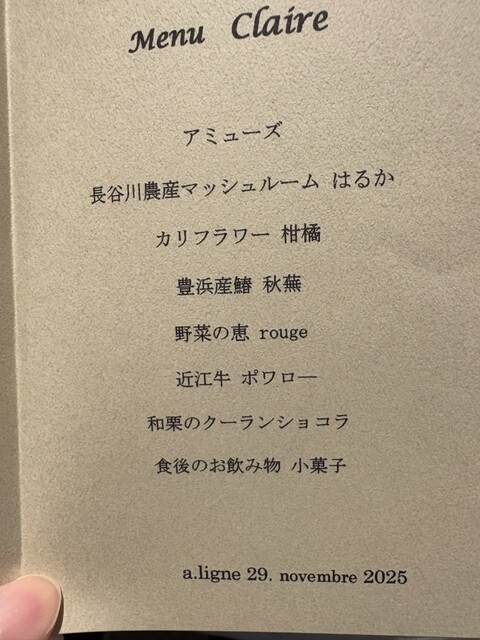 Menu Claire
アミューズ
長谷川農産マッシュルーム はるか
カリフラワー 柑橘
豊浜産鰆 秋蕪
野菜の恵 rouge
近江牛 ポワロ―
和栗のクーランショコラ
食後のお飲み物 小菓子
a.ligne 29. novembre 2025